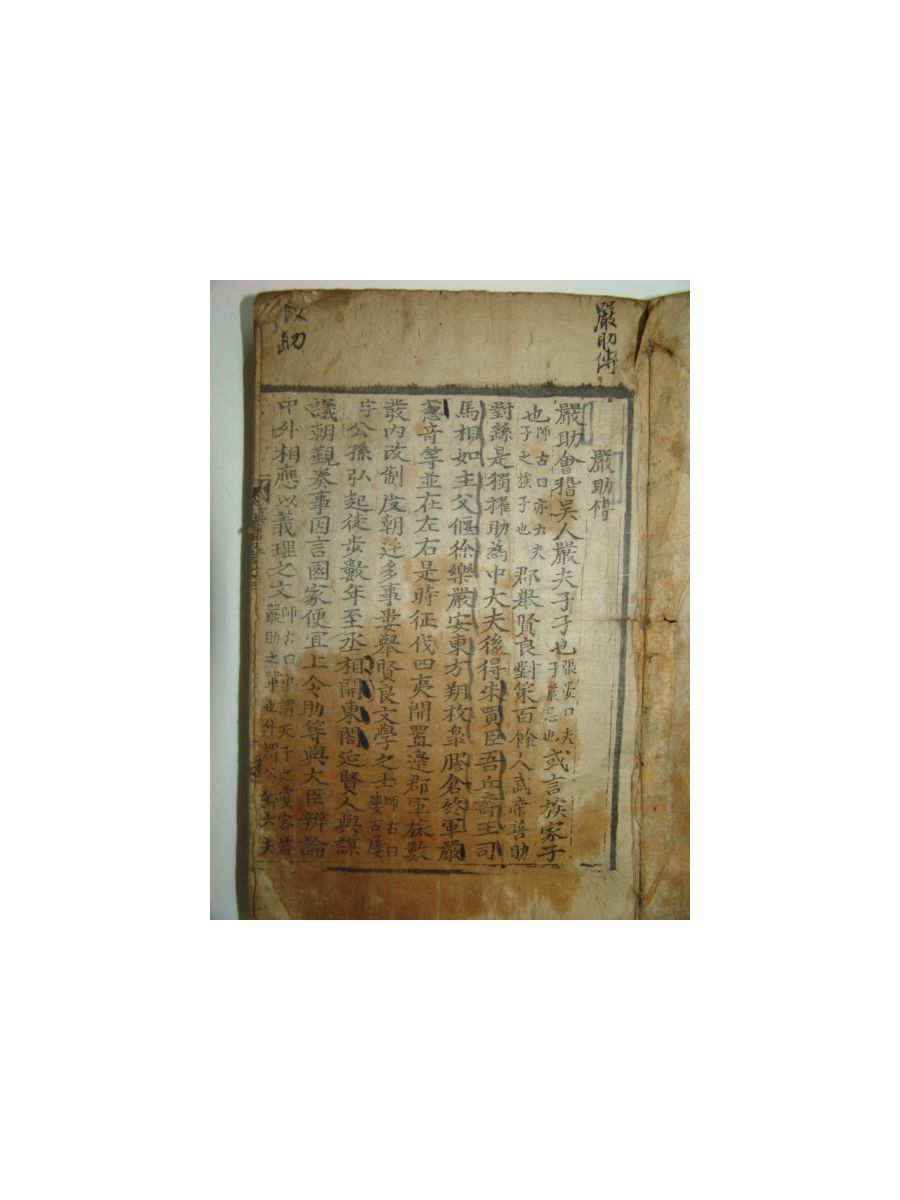 嚴助傳
嚴助傳
嚴助會稽吳人嚴夫子子也張晏曰夫子嚴忌也或言族家子
也師古曰亦云夫子之族子也郡舉賢良對策百餘人武帝善助
對繇是獨擢助為中大夫後得朱買臣吾丘壽王司
馬相如主父偃徐樂嚴安東方朔枚皋膠倉終軍嚴
蔥奇等並在左右是時征伐四夷開置邊郡軍旅數
發內改制度朝廷多事婁舉賢良文學之士師古曰婁古屢
字公孫弘起徒步數年至丞相開東閤延賢人與謀
議朝覲奏事因言國家便宜上令助等與大臣辨論
中外相應以義理之文師古曰中謂天子之賓客若嚴助之輩也外謂公卿大夫
助